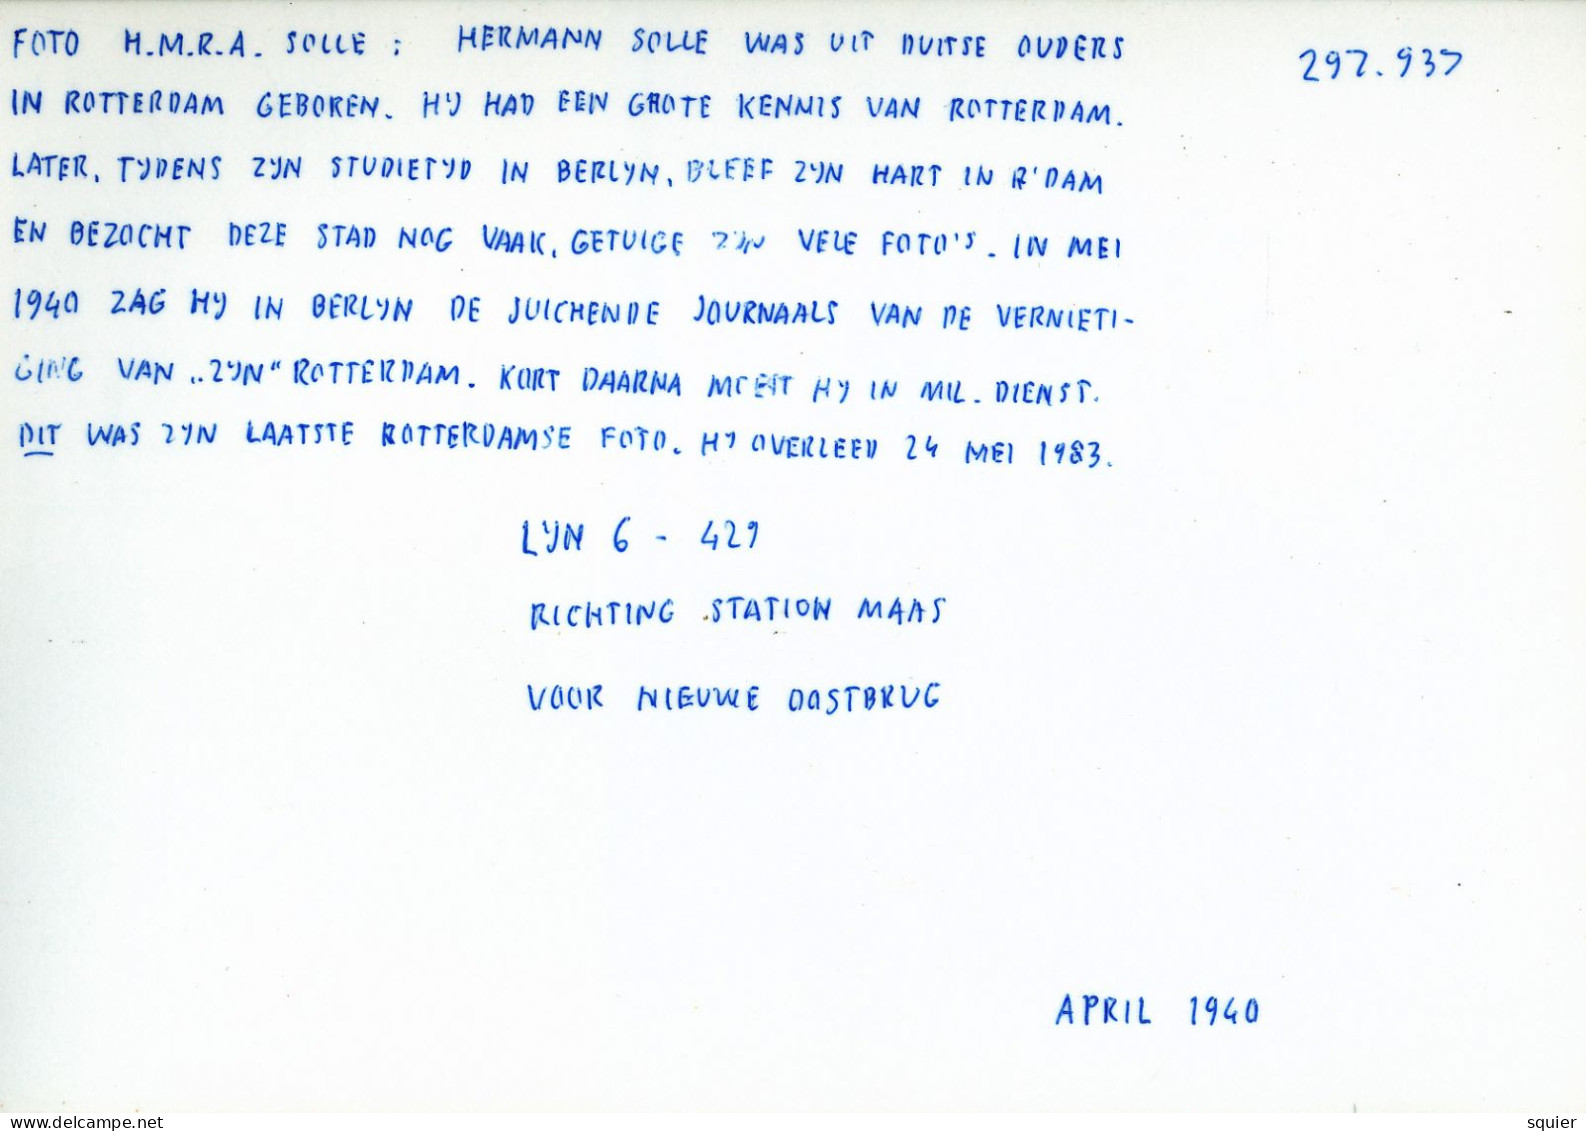 FOTO H.M.R.A. SOLLE : HERMANN SOLLE WAS UIT DUITSE OUDERS
297.937
IN ROTTERDAM GEBOREN. HIJ HAD EEN GROTE KENNIS VAN ROTTERDAM.
LATER, TIJDENS ZIJN STUDIETIJD IN BERLIJN, BLEEF ZIJN HART IN R'DAM
EN BEZOCHT DEZE STAD NOG VAAK, GETUIGE ZIJN VELE FOTO'S. IN MEI
1940 ZAG HIJ IN BERLIJN DE JUICHENDE JOURNAALS VAN DE VERNIETI-
GING VAN „ZIJN" ROTTERDAM. KORT DAARNA MOEST HIJ IN MIL. DIENST.
DIT WAS ZIJN LAATSTE ROTTERDAMSE FOTO. HIJ OVERLEED 24 MEI 1983.
LIJN 6 - 429
RICHTING STATION MAAS
VOOR NIEUWE OOSTBRUG
APRIL 1940
www.delcampe.net
squier